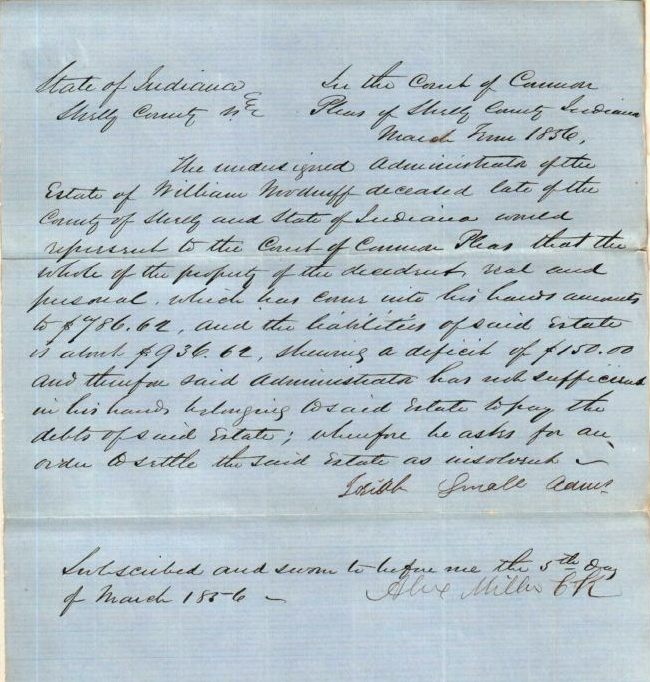 State of Indiana
Shelby County
In the Court of Common
Pleas of Shelby County Indiana
March Term 1856,
The undersigned Administrator of the
Estate of William Woodruff deceased late of the
County of Shelby and State of Indiana would
represent to the Court of Common Pleas that the
whole of the property of the decedent, real and
personal, which has come into his hands amounts
to $786.62, and the liabilities of said Estate
is about $936.62, shewing a deficit of $150.00
and therefore said Administrator has not sufficient
in his hands belonging to said Estate to pay the
debts of said Estate; wherefore he asks for an
order to settle the said Estate as insolvent
Small Admr
Subscribed and sworn to before me the 5th day
of March 1856
Alex Miller Clk